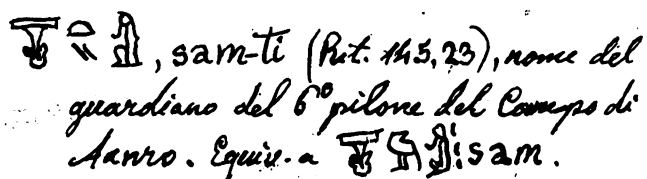 , sam-ti (Rit. 145, 23), nome del
guardiano del 6º pilone del Campo di
Aanro. Equiv. a : sam.